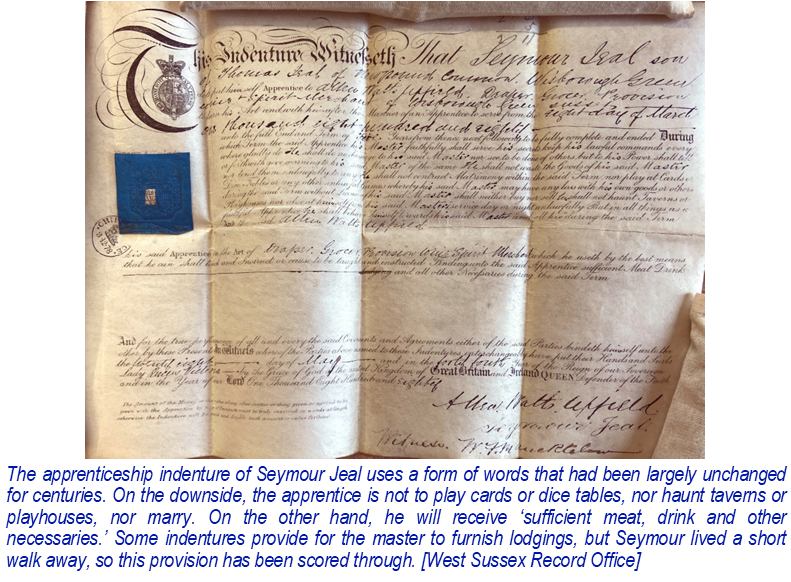 This Indenture Witnesseth That Seymour Jeal son
of Thomas Jeal of Common, Wisborough Green
put himself Apprentice to Allen Watts Upfield, Draper, Grocer, Provision
Spirit Merchant of Wisborough Green
his Art and with him after the Manner of an Apprentice to serve from the eight day of March
One Thousand eight hundred and eighty
unto the full End and Term of Years from thence next following to be fully complete and ended During
which Term the said Apprentice his Master faithfully shall serve his secrets keep his lawful commands every
where gladly do He shall do no damage to his said Master nor see to be done of others but to his Power shall
or forthwith give warning to his said Master of the same He shall not waste the Goods of his said Master
nor lend them unlawfully to any shall not contract Matrimony within the said Term nor play at Cards or
Dice Tables or any other unlawful Games whereby his said Master may have any loss with his own goods or others
said Term without Licence of his said Master shall neither buy nor sell He shall not haunt Taverns or
Playhouses nor absent himself from his said Master's service day or night unlawfully But in all things as a
faithful Apprentice He shall behave himself towards his said Master and all his during the said Term
said Allen Watts Upfield
his said Apprentice in the Art of Draper, Grocer, Provision and Spirit Merchant which he useth by the best means
that he can shall teach and Instruct or cause to be taught and instructed Finding unto the said Apprentice sufficient Meat Drink
and all other Necessaries during the said Term
And for the true performance of all and every the said Covenants and Agreements either of the said Parties bindeth himself unto the
other by these Presents In Witness whereof the Parties above named to these Indentures interchangeably have put their Hands and Seals
the eight day of May and in the forty fourth Year of the Reign of our Sovereign
Lady Queen Victoria by the Grace of God of the united Kingdom of Great Britain and Ireland QUEEN Defender of the Faith
and in the Year of our Lord One Thousand Eight Hundred and eighty
Allen Watts Upfield
Seymour Jeal
Witness. W.
The apprenticeship indenture of Seymour Jeal uses a form of words that had been largely unchanged
for centuries. On the downside, the apprentice is not to play cards or dice tables, nor haunt taverns or
playhouses, nor marry. On the other hand, he will receive ‘sufficient meat, drink and other
necessaries.’ Some indentures provide for the master to furnish lodgings, but Seymour lived a short
walk away, so this provision has been scored through. [West Sussex Record Office]